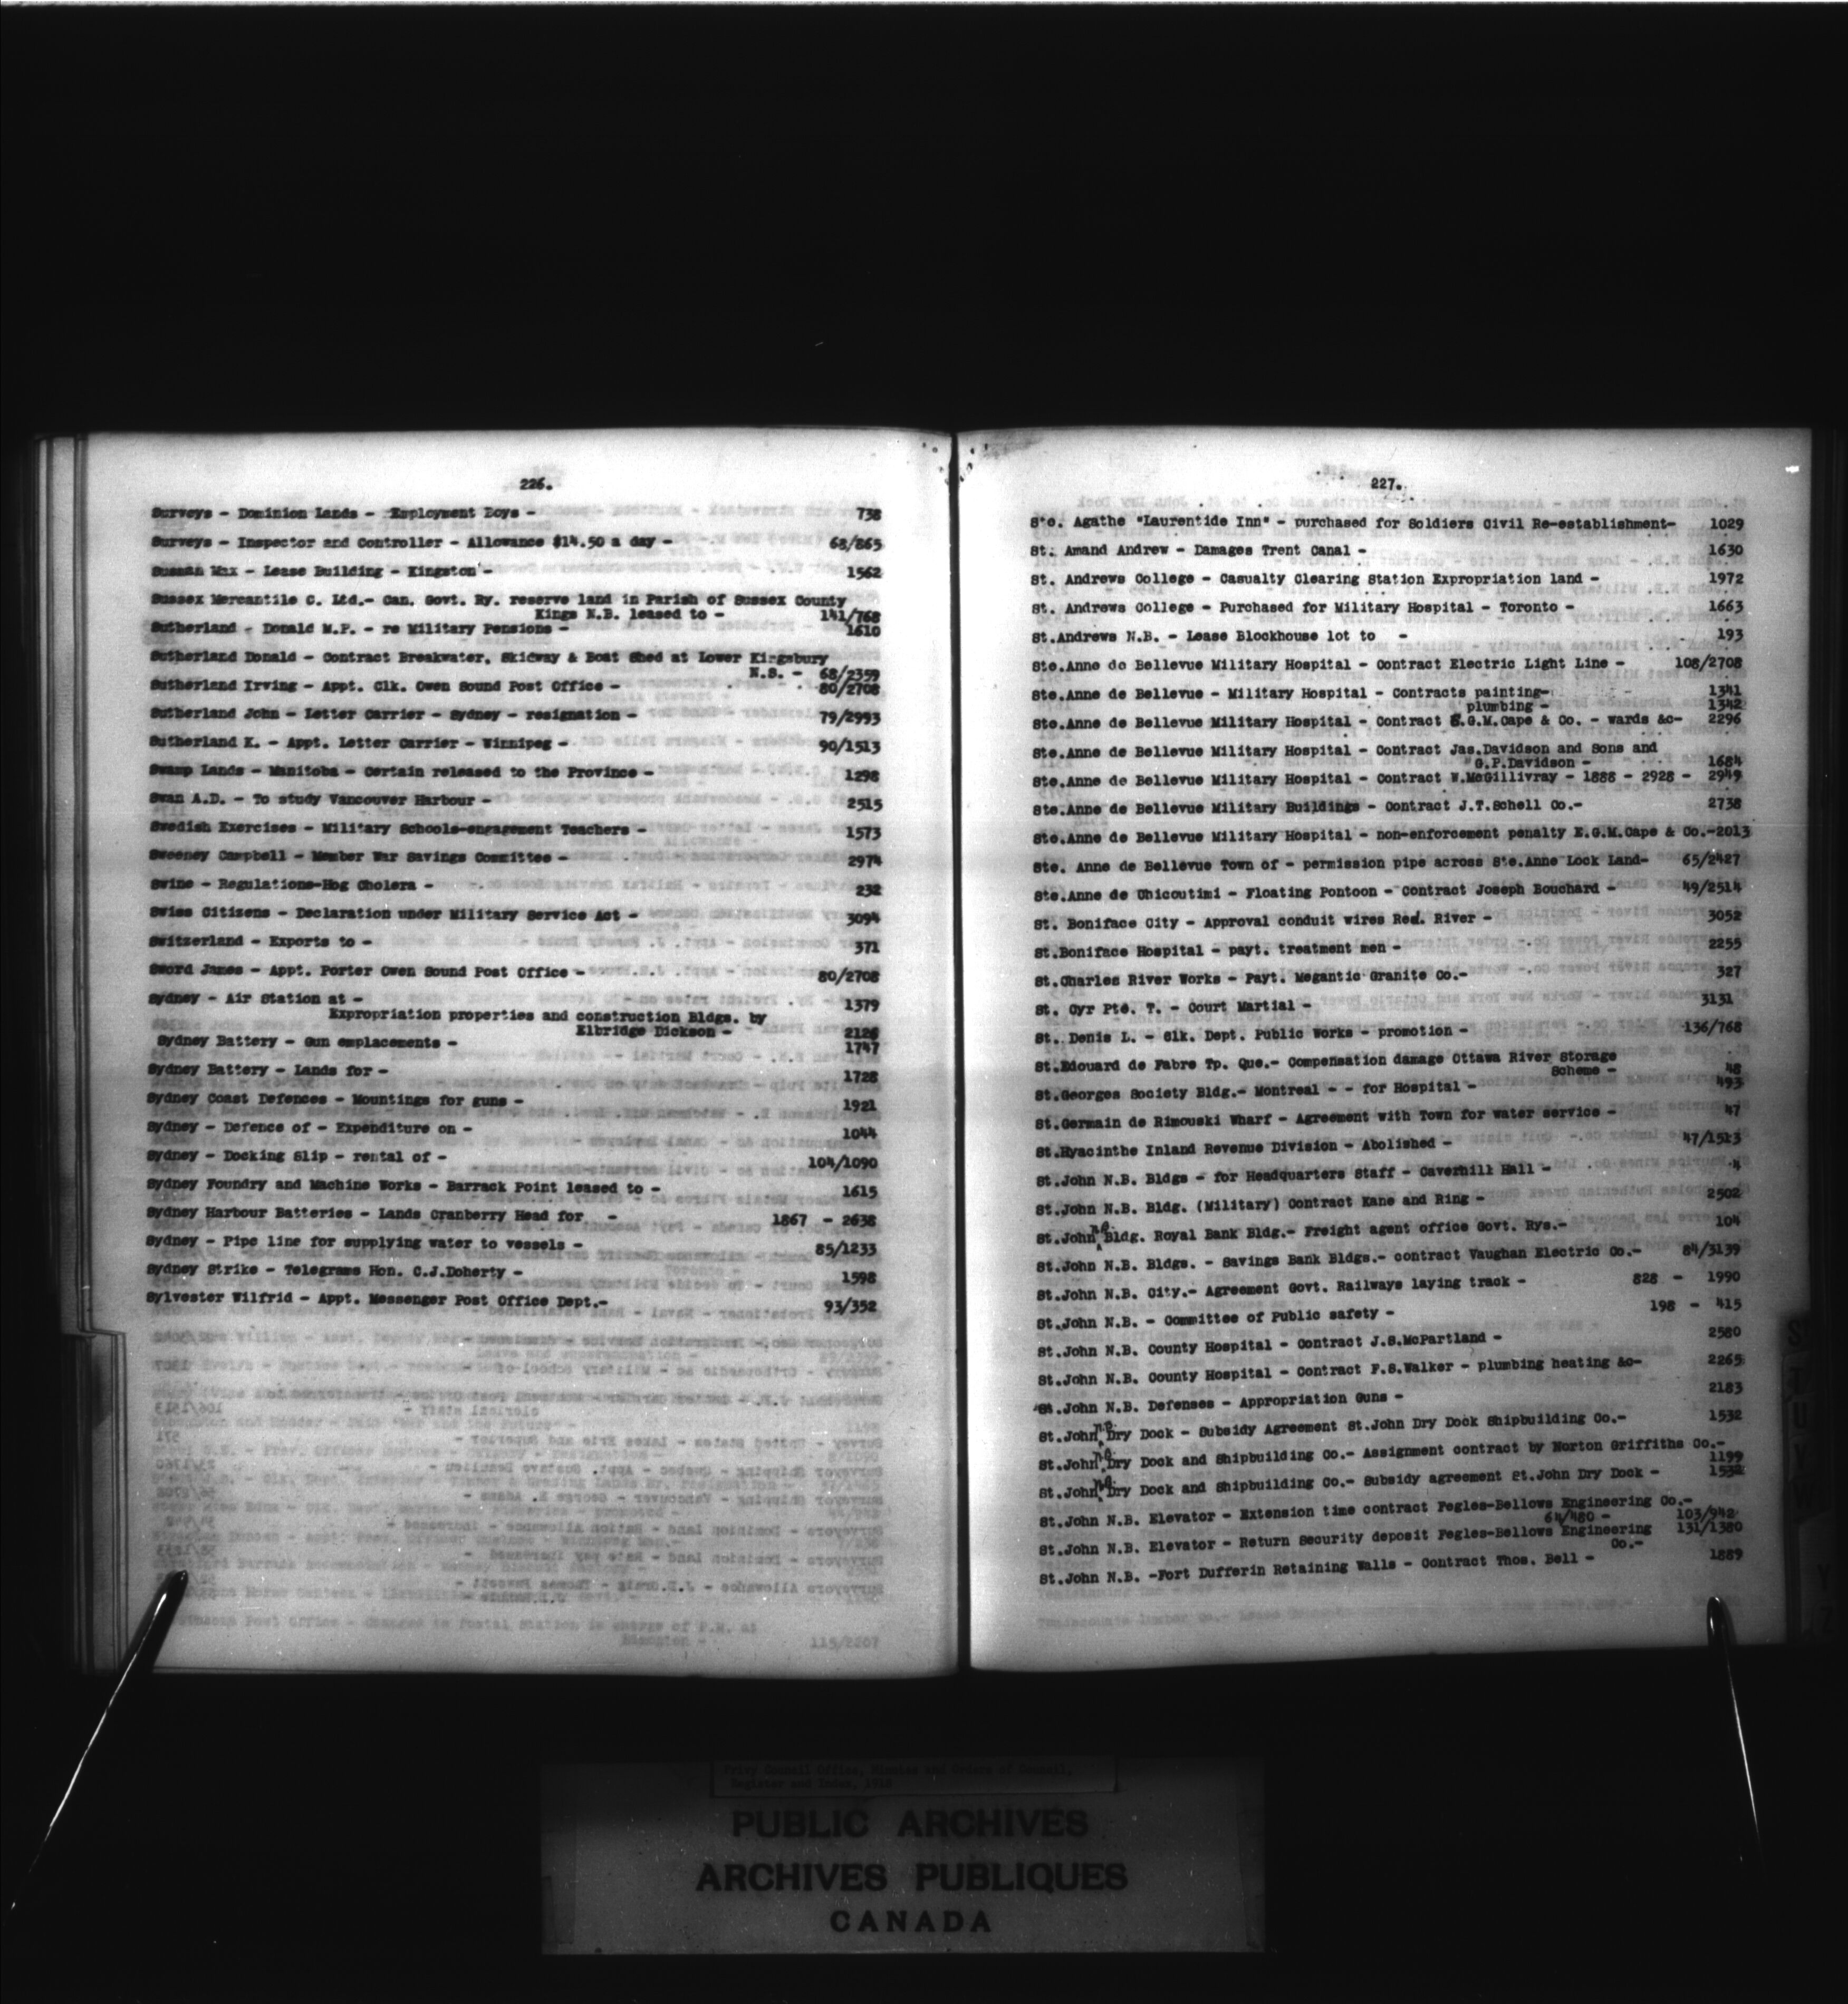 226.
Surveys - Dominion Lands - Employment Boys - 738
Surveys - Inspector and Controller - Allowance $14.50 a day - 68/865
Susman Max - Lease Building - Kingston - 1562
Sussex Mercantile C. Ltd.- Can. Govt. Ry. reserve land in Parish of Sussex County
Kings N.B. leased to - 141/768
Sutherland - Donald M.P. - re Military Pensions - 1610
Sutherland Donald - Contract Breakwater, Skidway & Boat Shed at Lower Kingsbury
N.S. - 68/2359
Sutherland Irving - Appt. Clk. Owen Sound Post Office - 80/2708
Sutherland John - Letter Carrier - Sydney - resignation - 79/2993
Sutherland K. - Appt. Letter Carrier - Winnipeg - 90/1513
Swamp Lands - Manitoba - Certain released to the Province - 1298
Swan A.D. - To study Vancouver Harbour - 2515
Swedish Exercises - Military Schools-engagement Teachers - 1573
Sweeney Campbell - Member War Savings Committee - 2974
Swine - Regulations-Hog Cholera - 232
Swiss Citizens - Declaration under Military Service Act - 3094
Switzerland - Exports to - 371
Sword James - Appt. Porter Owen Sound Post Office - 80/2708
Sydney - Air Station at - 1379
Expropriation properties and construction Bldgs. by
Elbridge Dickson - 2126
Sydney Battery - Gun emplacements - 1747
Sydney Battery - Lands for - 1728
Sydney Coast Defences - Mountings for guns - 1921
Sydney - Defence of - Expenditure on - 1044
Sydney - Docking Slip - rental of - 104/1090
Sydney Foundry and Machine Works - Barrack Point leased to - 1615
Sydney Harbour Batteries - Lands Cranberry Head for - 1867 - 2638
Sydney - Pipe line for supplying water to vessels - 85/1233
Sydney Strike - Telegrams Hon. C.J.Doherty - 1598
Sylvester Wilfrid - Appt. Messenger Post Office Dept.- 93/352
227.
Ste. Agathe "Laurentide Inn" - purchased for Soldiers Civil Re-establishment- 1029
St. Amand Andrew - Damages Trent Canal - 1630
St. Andrews College - Casualty Clearing Station Expropriation land - 1972
St. Andrews College - Purchased for Military Hospital - Toronto - 1663
St.Andrews N.B. - Lease Blockhouse lot to - 193
Ste.Anne de Bellevue Military Hospital - Contract Electric Light Line - 108/2708
Ste.Anne de Bellevue - Military Hospital - Contracts painting- 1341
plumbing - 1342
Ste.Anne de Bellevue Military Hospital - Contract E.G.M.Cape & Co. - wards &c- 2296
Ste.Anne de Bellevue Military Hospital - Contract Jas.Davidson and Sons and
G.P.Davidson - 1684
Ste.Anne de Bellevue Military Hospital - Contract W.McGillivray - 1888 - 2928 - 2949
Ste.Anne de Bellevue Military Buildings - Contract J.T.Schell Co.- 2738
Ste.Anne de Bellevue Military Hospital - non-enforcement penalty E.G.M.Cape & Co.-2013
Ste. Anne de Bellevue Town of - permission pipe across Ste.Anne Lock Land- 65/2427
Ste.Anne de Chicoutimi - Floating Pontoon - Contract Joseph Bouchard - 49/2514
St. Boniface City - Approval conduit wires Red. River - 3052
St.Boniface Hospital - payt. treatment men - 2255
St.Charles River Works - Payt. Megantic Granite Co.- 327
St. Cyr Pte. T. - Court Martial - 3131
St. Denis L. - Clk. Dept. Public Works - promotion - 136/768
St.Edouard de Fabre Tp. Que.- Compensation damage Ottawa River Storage
Scheme - 48
St.Georges Society Bldg.- Montreal - - for Hospital - 493
St.Germain de Rimouski Wharf - Agreement with Town for water service - 47
St.Hyacinthe Inland Revenue Division - Abolished - 47/1513
St.John N.B. Bldgs - for Headquarters Staff - Caverhill Hall - 4
St.John N.B. Bldg. (Military) Contract Kane and Ring - 2502
St.John NB Bldg. Royal Bank Bldg.- Freight agent office Govt. Rys.- 104
St.John N.B. Bldgs. - Savings Bank Bldgs.- contract Vaughan Electric Co.- 84/3139
St.John N.B. City.- Agreement Govt. Railways laying track - 828 - 1990
St.John N.B. - Committee of Public safety - 198 - 415
St.John N.B. County Hospital - Contract J.S.McPartland - 2580
St.John N.B. County Hospital - Contract F.S.Walker - plumbing heating &c- 2265
St.John N.B. Defenses - Appropriation Guns - 2183
St.John NB Dry Dock - Subsidy Agreement St.John Dry Dock Shipbuilding Co.- 1532
St.John NB Dry Dock and Shipbuilding Co.- Assignment contract by Norton Griffiths Co.-
1199
St.John NB Dry Dock and Shipbuilding Co.- Subsidy agreement St.John Dry Dock - 1532
St.John N.B. Elevator - Extension time contract Fegles-Bellows Engineering Co.-
64/480 - 103/942
St.John N.B. Elevator - Return Security deposit Fegles-Bellows Engineering 131/1380
Co.-
St.John N.B. -Fort Dufferin Retaining Walls - Contract Thos. Bell - 1889
Privy Council Office, Minutes and Orders in Council,
Register and Index, 1918
PUBLIC ARCHIVES
ARCHIVES PUBLIQUES
CANADA